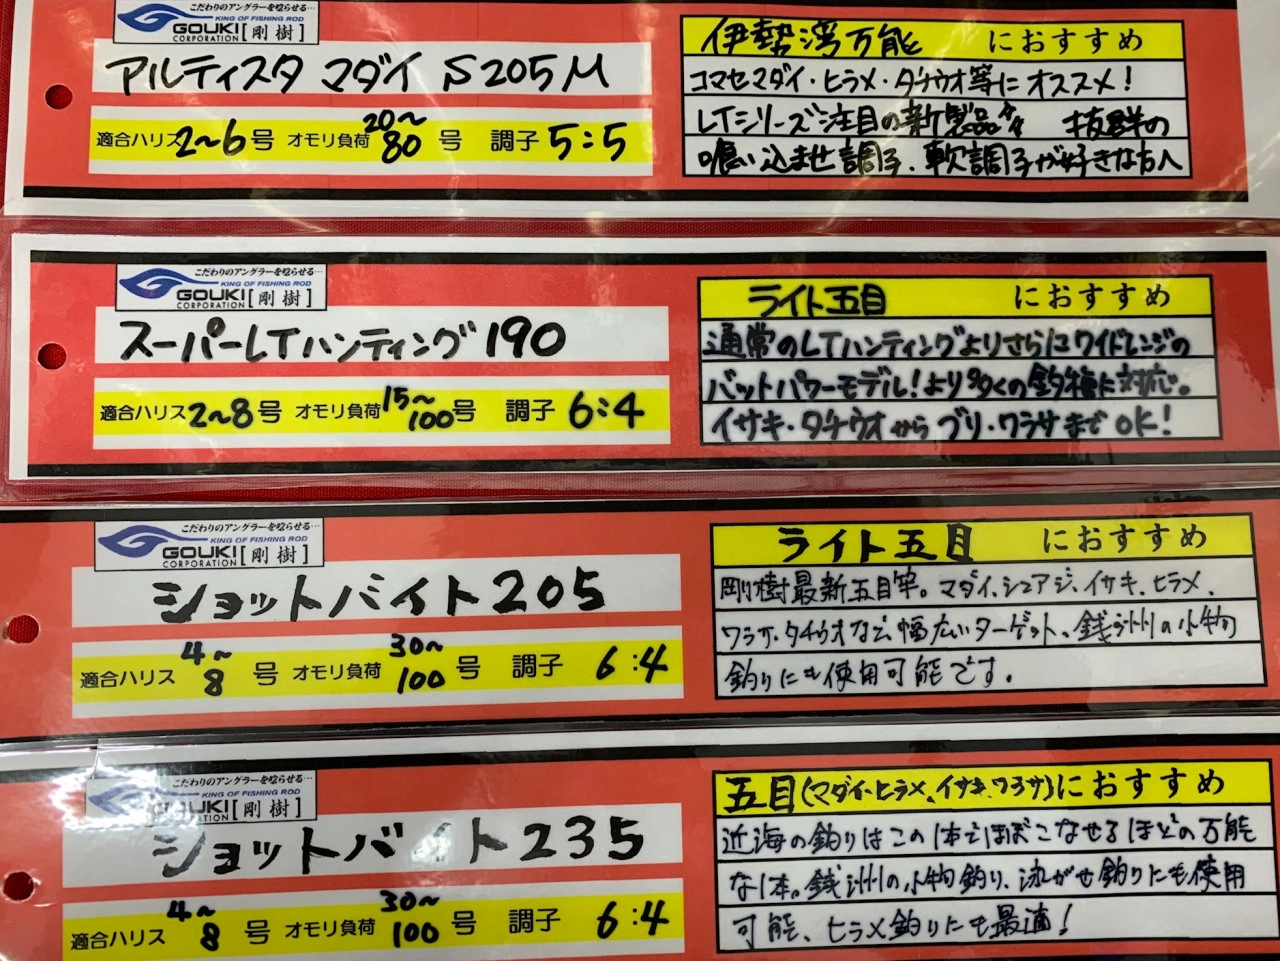 こだわりのアングラーを唸らせる…
KING OF FISHING ROD
GOUKI
CORPORATION [剛樹]
アルティスタ マダイ S205M
適合ハリス 2〜6 号 オモリ負荷 20〜80 号 調子 5:5
伊勢湾万能 におすすめ
コマセマダイ・ヒラメ・タチウオ等にオススメ!
LTシリーズ注目の新製品!! 抜群の
喰い込ませ調子、軟調子が好きな方へ
こだわりのアングラーを唸らせる…
KING OF FISHING ROD
GOUKI
CORPORATION [剛樹]
スーパーLTハンティング190
適合ハリス 2〜8 号 オモリ負荷 15〜100 号 調子 6:4
ライト五目 におすすめ
通常のLTハンティングよりさらにワイドレンジの
バットパワーモデル!より多くの釣種に対応。
イサキ・タチウオからブリ・ワラサまでOK!
こだわりのアングラーを唸らせる…
KING OF FISHING ROD
GOUKI
CORPORATION [剛樹]
ショットバイト205
適合ハリス 4〜8 号 オモリ負荷 30〜100 号 調子 6:4
ライト五目 におすすめ
剛樹最新五目竿。マダイ、シマアジ、イサキ、ヒラメ、
ワラサ・タチウオなど、幅広いターゲット。銭洲の小物
釣りにも使用可能です。
こだわりのアングラーを唸らせる…
KING OF FISHING ROD
GOUKI
CORPORATION [剛樹]
ショットバイト235
適合ハリス 4〜8 号 オモリ負荷 30〜100 号 調子 6:4
五目(マダイ・ヒラメ、イサキ、ワラサ)におすすめ
近海の釣りはこの1本でほぼこなせるほどの万能
な1本。銭洲の小物釣り、泳がせ釣りにも使用
可能、ヒラメ釣りにも最適!